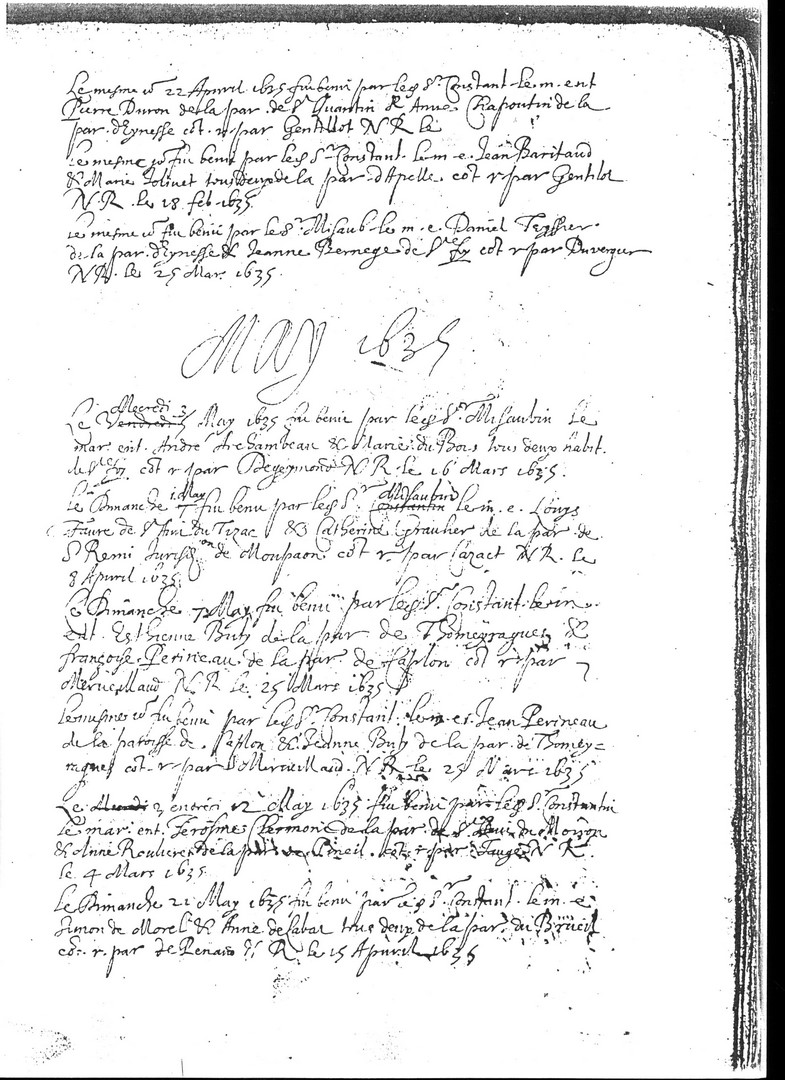 Le mesme jo^r 22 Apvril 1635 fut beni par led s^r Constant le m. ent
Pierre Duron de la par. de S^t Quantin & Anne Chapoutin de la
par. d'Eynesse cot. r. par Gentillot N R le
Le mesme jo^r fut beni par led s^r Constant. le m. e. Jean Baritaud
& Marie Jolivet tous deux de la par. d'Apelle. cot r par Gentilot
N. R. le 18 feb 1635
Le mesme jo^r fut beni par le s^r Misaub. le m. e. Daniel Teyssier.
de la par. d'Eynesse & Jeanne Bernege de S^te foy cot r par Duvergier
N R. le 25 Mar. 1635.
May 1635
Le Mecredi 3 May 1635 fut beni par led s^r Misaubin le
mar. ent. André Archambeau & Marie du Bois tous deux habit.
de S^te foy cot r par Degeymond N R. le 16 Mars 1635.
Le Dimanche 7 May fut beni par led s^r Misaubin le m. e. Louys
Faure de S^t du Tizac & Catherine Graulier de la par. de
S^t Remi Juris^on de Monpaon. cot r. par N R. le
8 Apvril 1635
Le Dimanche 7 May fut beni par led s^r Constant. le m
ent. Esthienne Buty de la par de Thomeyragues &
françoise Perineau. de la par. de saplon cot r par
Merveillaud N. R le 25 Mars 1635
Le mesme jo^r fut beni par led s^r Constant. le m. e. Jean Perineau
de la paroisse de. saplon & Jeanne Buty de la par. de Thomey=
ragues cot. r par Merveillaud. N R. le 25 Mars 1635
Le 12 May 1635 fut beni par led s^r Constantin
le mar. ent. Jerosme Clermont de la par. de S^t de
& Anne Roulière de la par de Pineil. cot. r par Fauge N R.
le 4 Mars 1635
Le Dimanche 21 May 1635 fut beni par led s^r Constant. le m. e
Simon de Morel & Anne de Labat tous deux de la par. du Brüeil
cot. r. par de Renaud N R. le 15 Apvril 1635